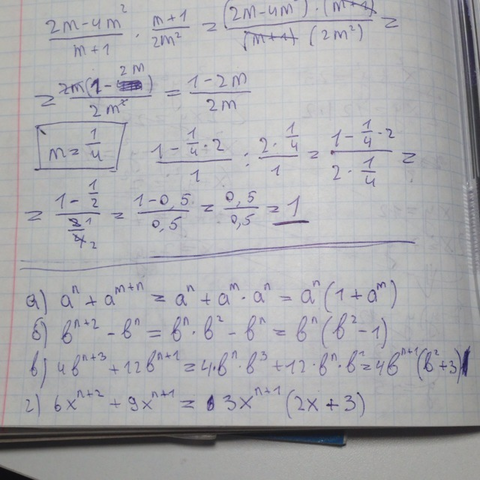 (2m-4m²)/(m+1) · (m+1)/(2m²) = ((2m-4m²)·(m+1))/((m+1)(2m²)) =
= 2m(1-2m)/2m² = (1-2m)/2m
m = 1/4   (1 - 1/4·2)/1 : (2·1/4)/1 = (1 - 1/4·2)/(2·1/4) =
= (1 - 1/2)/(2/4) = (1-0,5)/0,5 = 0,5/0,5 = 1
а) aⁿ + a^(m+n) = aⁿ + a^m · aⁿ = aⁿ(1+a^m)
б) b^(n+2) - bⁿ = bⁿ·b² - bⁿ = bⁿ(b²-1)
в) 4b^(n+3) + 12b^(n+1) = 4·bⁿ·b³ + 12·bⁿ·b = 4b^(n+1)(b²+3)
г) 6x^(n+2) + 9x^(n+1) = 3x^(n+1)(2x+3)